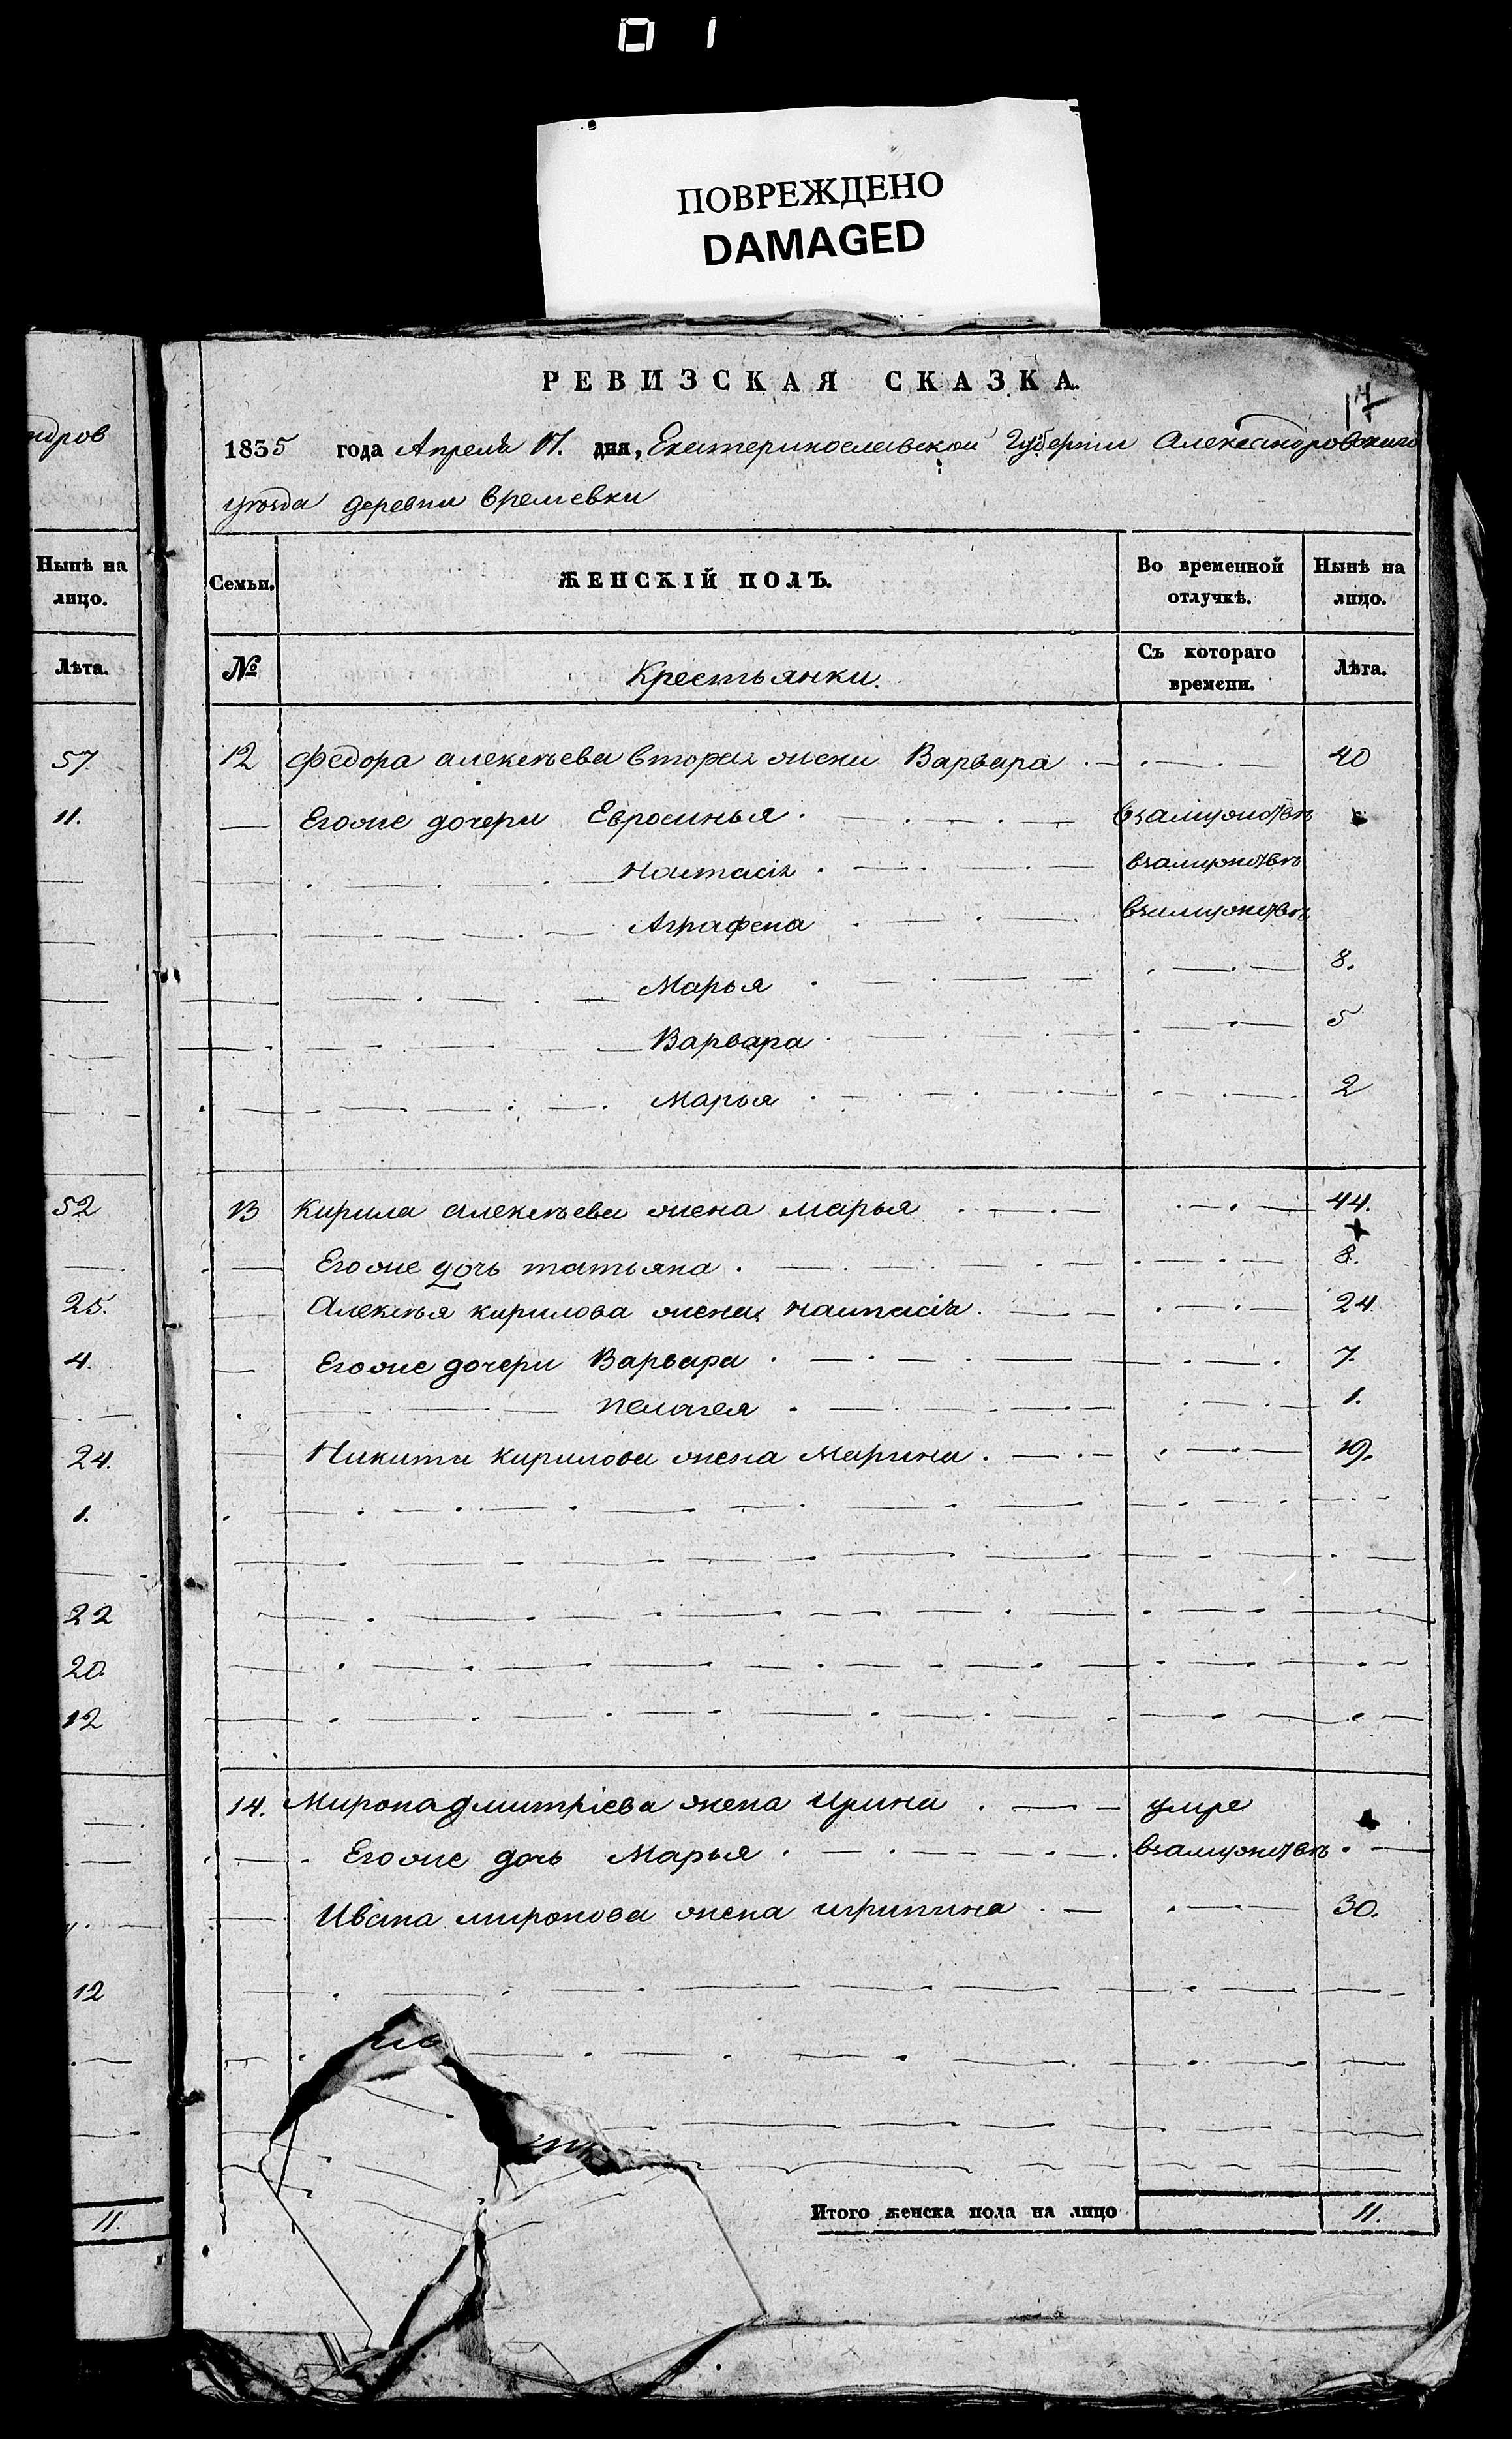 ПОВРЕЖДЕНО
DAMAGED
ндров
Нынѣ на
лицо.
Лѣта.
57
11.
52
25.
4.
24.
1.
22
20.
12
12
11.
РЕВИЗСКАЯ СКАЗКА.
17
1835 года Апреля 17. дня, Екатеринославской Губерніи Александровскаго
уѣзда деревни Времевки
Семьи. ЖЕНСКІЙ ПОЛЪ. Во временной отлучкѣ. Нынѣ на лицо.
№ Крестьянки. Съ котораго времени. Лѣта.
12 Федора алексѣева вторая жена Варвара 40
Егоже дочери Евросинья взамужствѣ
Настасія взамужствѣ
Аграфена взамужствѣ
Марья 8.
Варвара 5
Марья 2
13 Кирила алексѣева жена марья 44.
Егоже дочь татьяна 8.
Алексѣя кирилова жена настасія 24
Егоже дочери Варвара 7.
пелагея 1.
Никиты кирилова жена Марина 19.
14. Мирона дмитріева жена Ирина умре
Егоже дочь Марья взамужствѣ
Ивана миронова жена игрипина 30.
Итого женска пола на лицо 11.